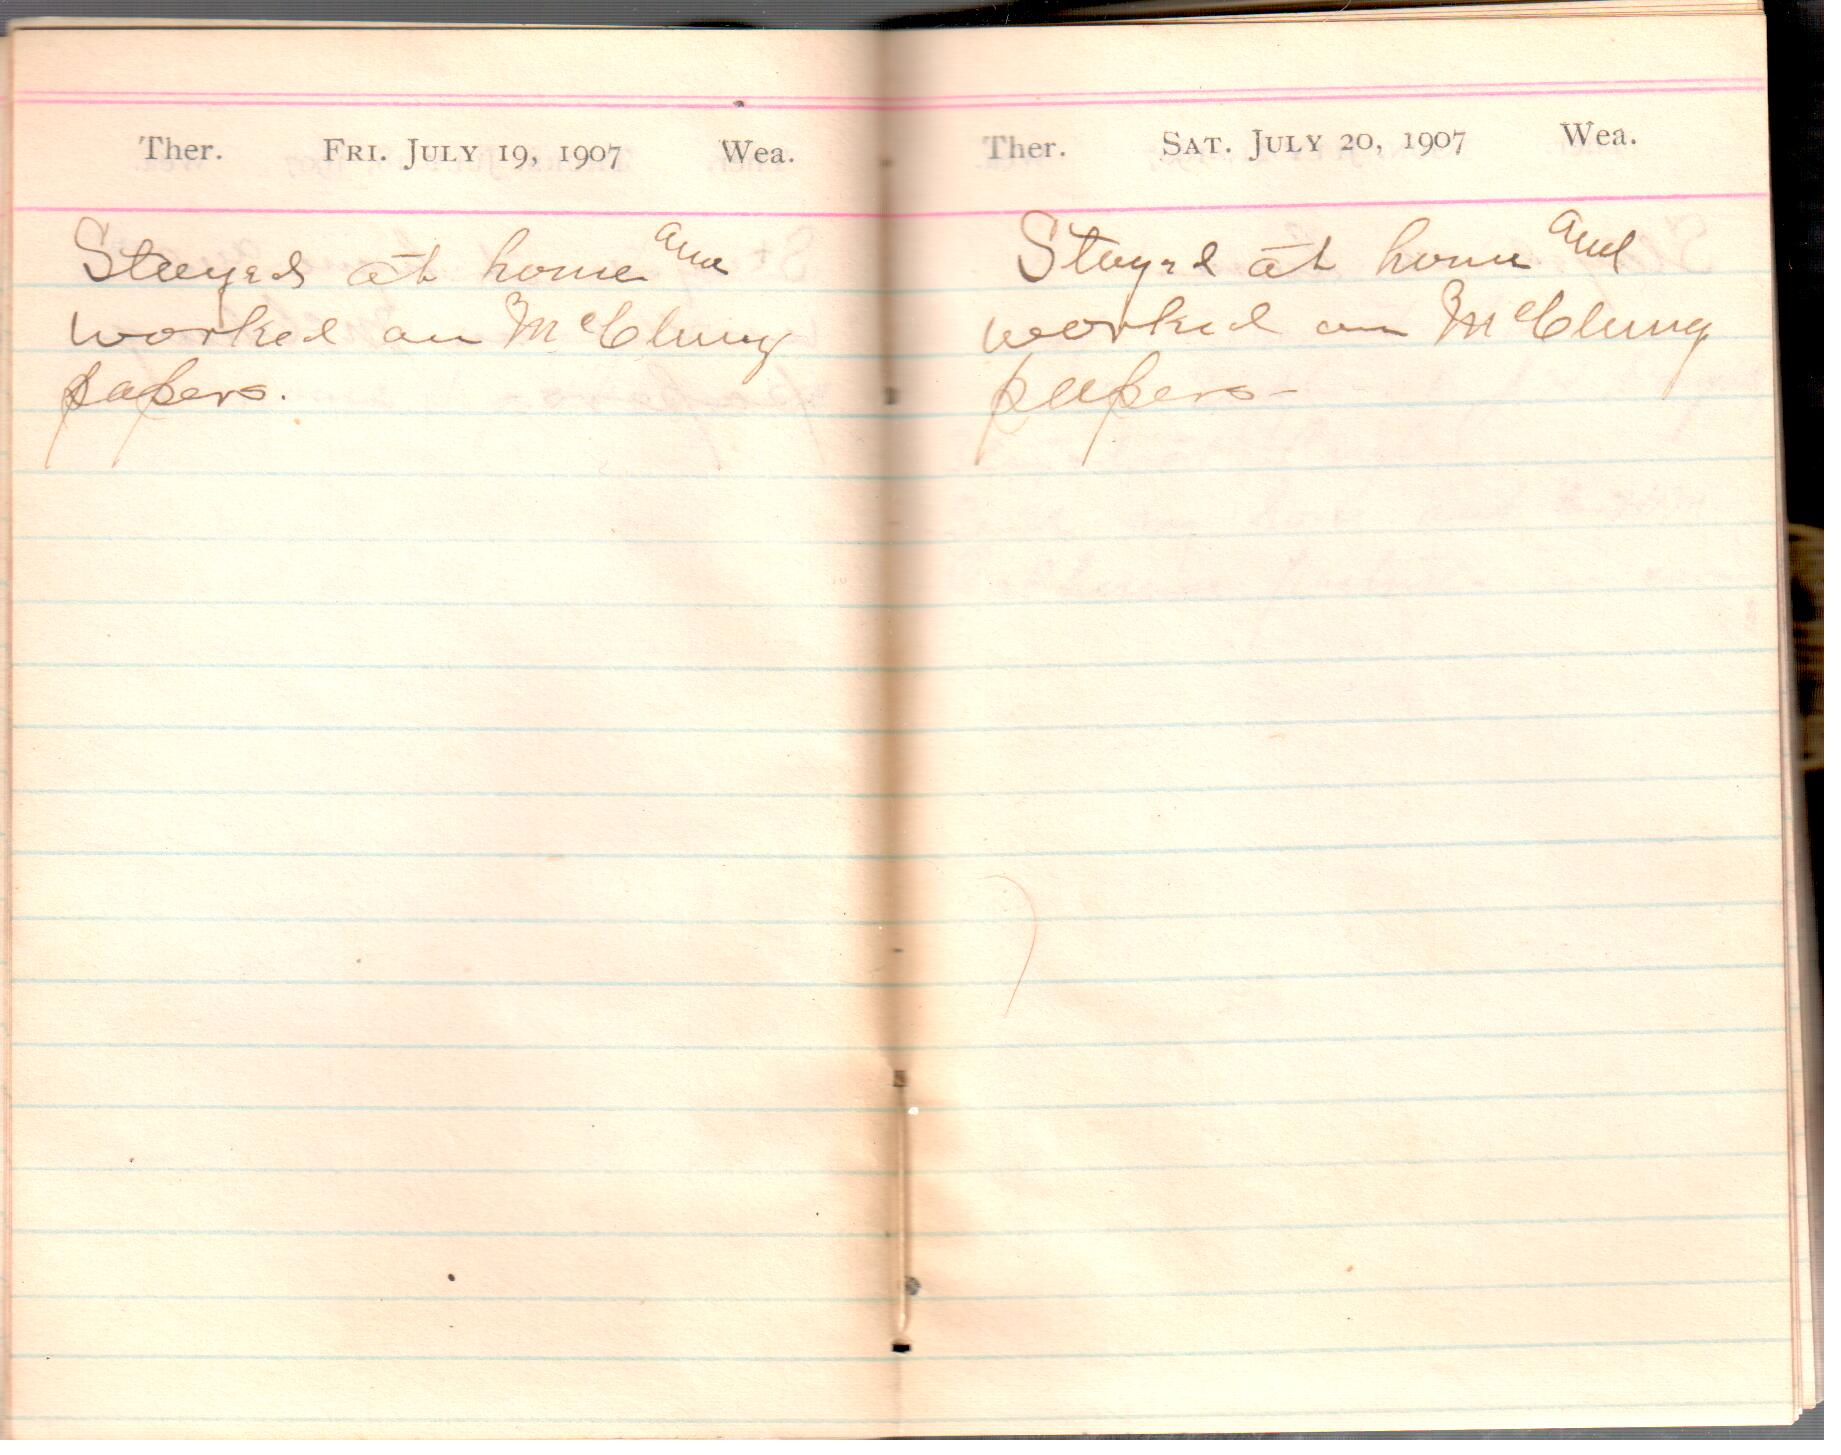 Ther. FRI. JULY 19, 1907 Wea.
Stayed at home and
worked on McClung
papers.
Ther. SAT. JULY 20, 1907 Wea.
Stayed at home and
worked on McClung
papers-